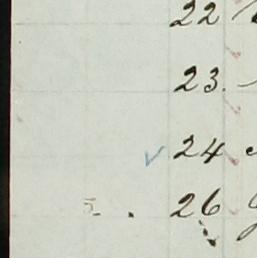 22
23.
✓ 24
5. . 26